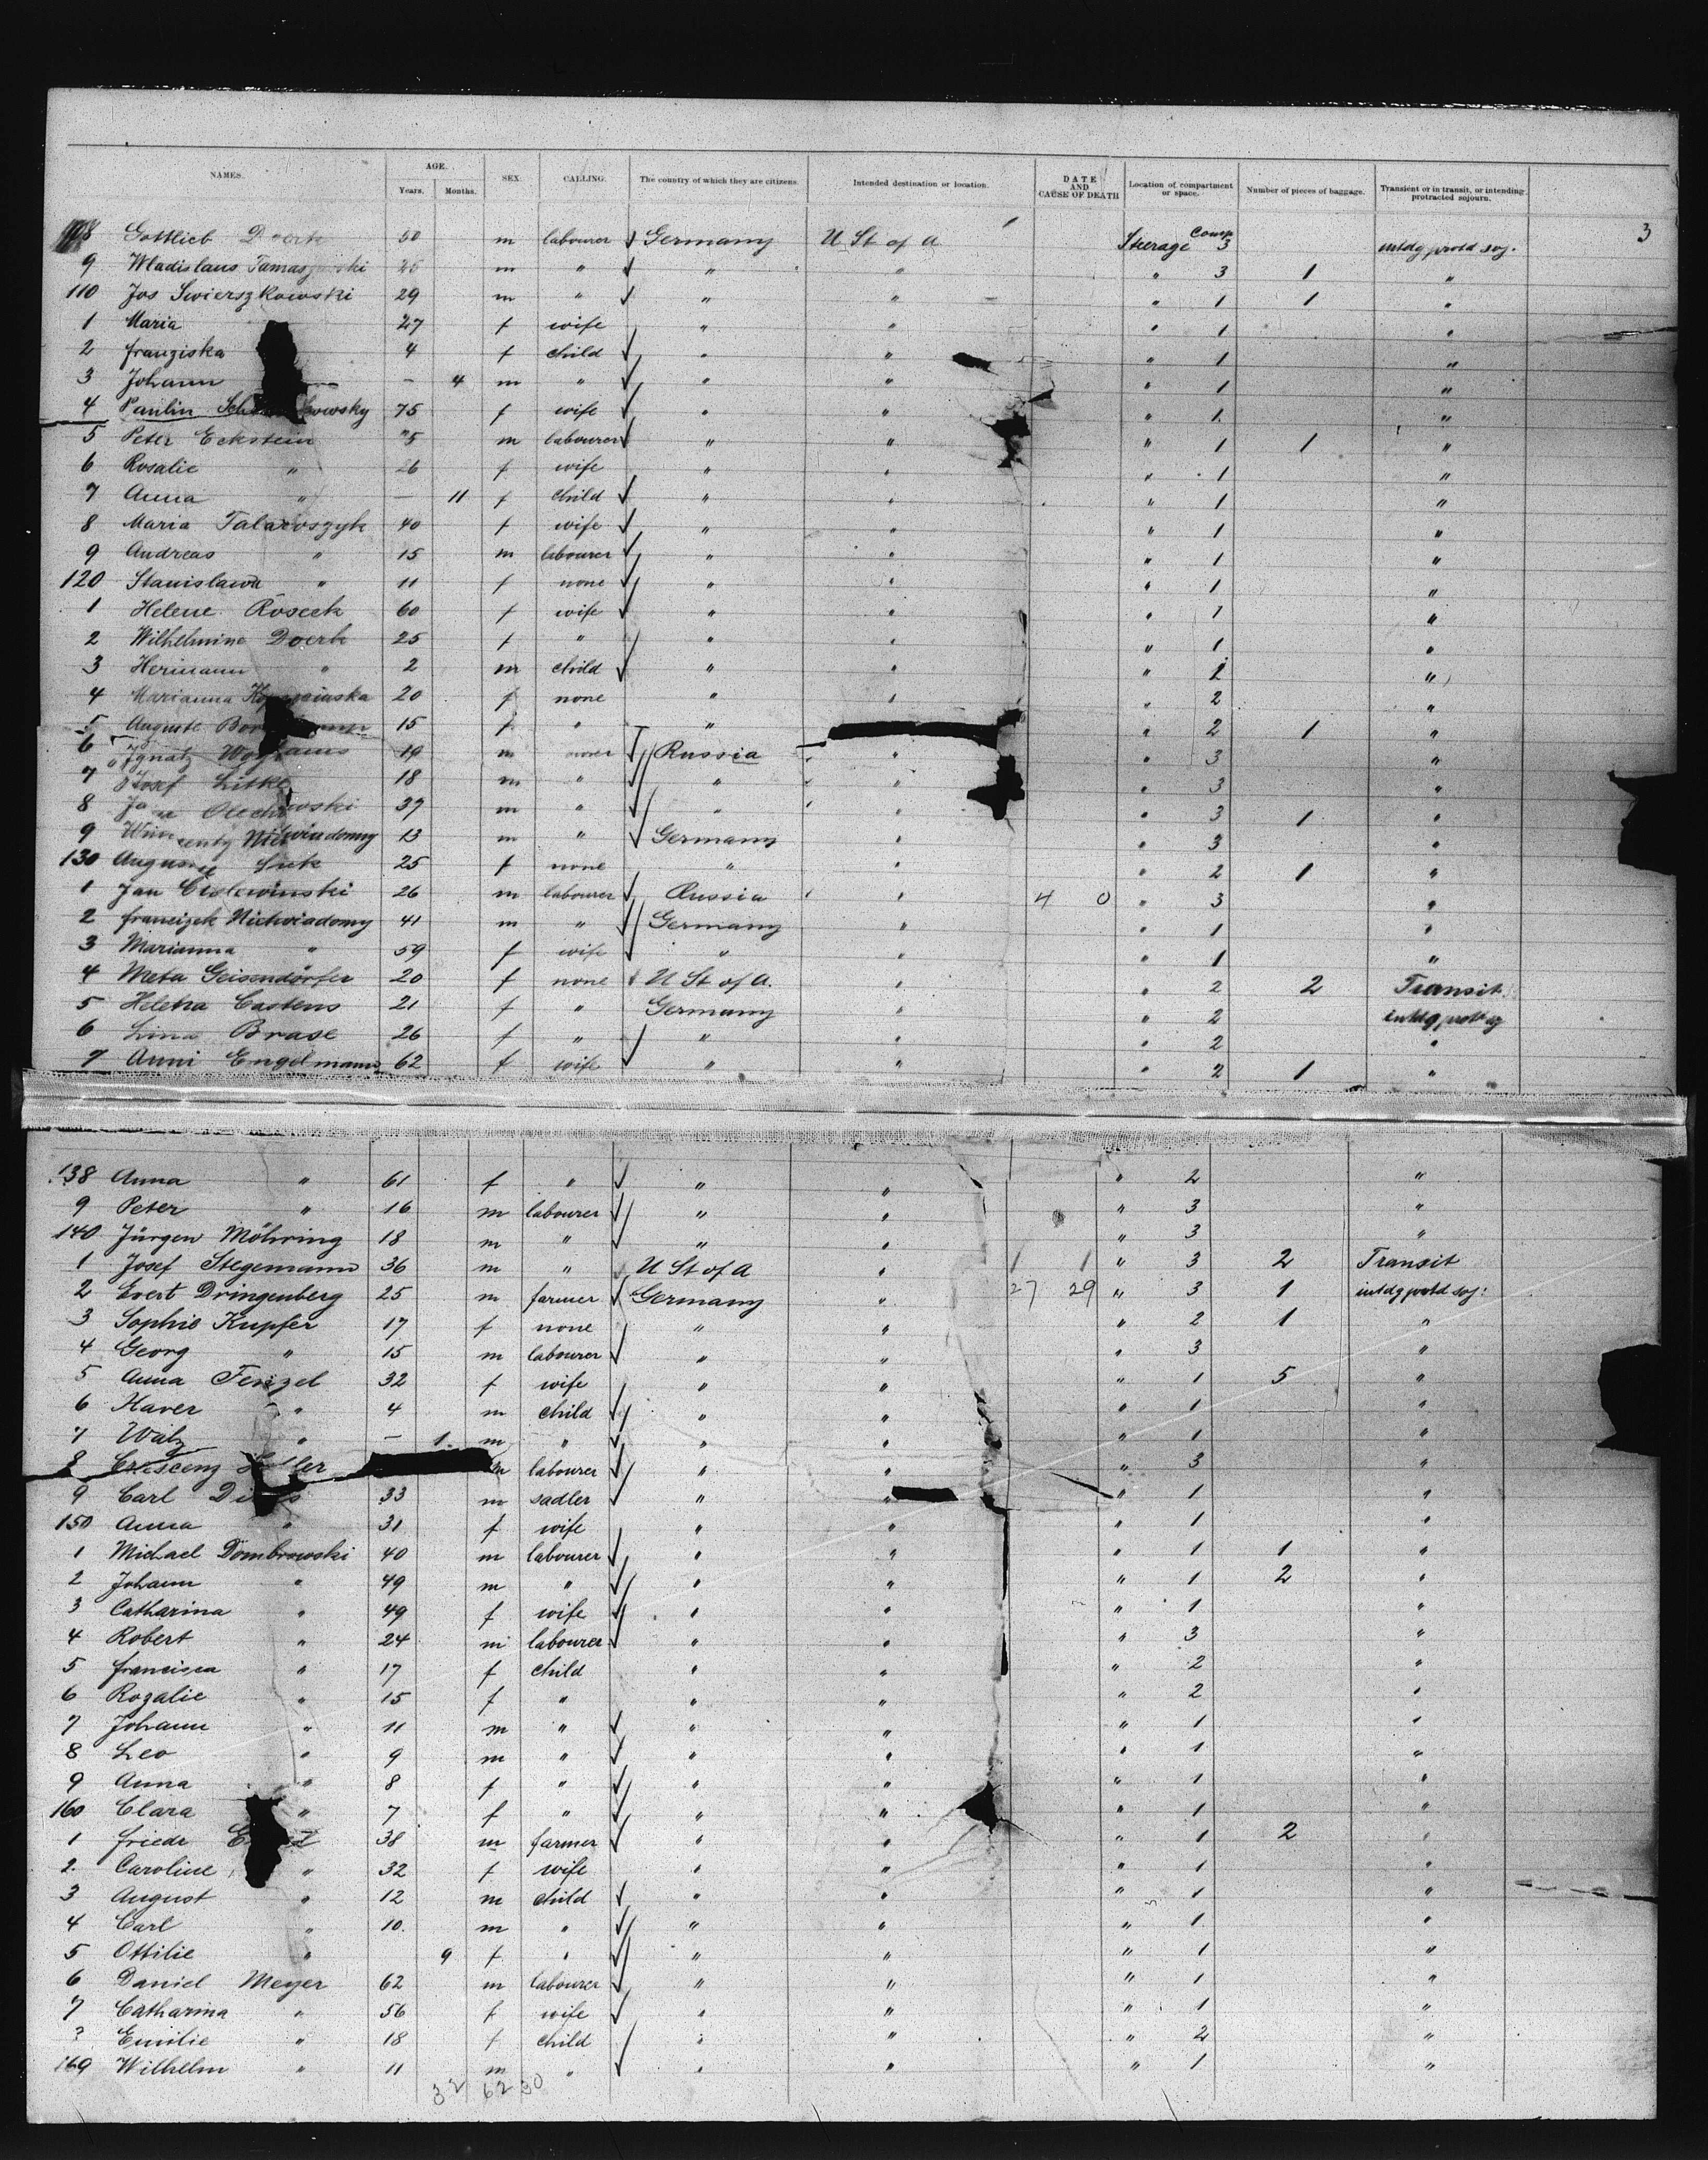 NAMES. AGE. Years. Months. SEX. CALLING. The country of which they are citizens. Intended destination or location. DATE AND CAUSE OF DEATH Location of compartment or space. Number of pieces of baggage. Transient or in transit, or intending protracted sojourn.
3
108 Gottlieb 50 m labourer Germany U St of A Steerage Comp 3 intdg protd soj.
9 Wladislaus m " " " " 3 1 "
110 Jos Swierszkowski 29 m " " " " 1 1 "
1 Maria 27 f wife " " " 1 "
2 Franziska 4 f child " " " 1 "
3 Johann – 4 m " " " " 1 "
4 Paulin 75 f wife " " " 1 "
5 Peter Eckstein m labourer " " " 1 1 "
6 Rosalie " 26 f wife " " " 1 "
7 Anna " – 11 f child " " " 1 "
8 Maria Talaroszyk 40 f wife " " " 1 "
9 Andreas " 15 m labourer " " " 1 "
120 Stanislawa " 11 f none " " " 1 "
1 Helene Roseck 60 f wife " " " 1 "
2 Wilhelmine Doerk 25 f " " " " 1 "
3 Hermann " 2 m child " " " 1 "
4 Marianna 20 f none " " " 2 "
5 Auguste 15 f " " " 2 1 "
6 Ignatz 19 m Russia " " 3 "
7 Josef Litke 18 m " " " " 3 "
8 37 m " " " " 3 1 "
9 13 m " Germany " " 3 "
130 25 f none " " " 2 1 "
1 Jan Cislewinski 26 m labourer Russia " 4 0 " 3 "
2 Francizek Niewiadomy 41 m " Germany " " 1 "
3 Marianna " 59 f wife " " " 1 "
4 Meta Geisendörfer 20 f none U St of A. " " 2 2 Transit
5 Helena Castens 21 f " Germany " " 2 intdg protd soj
6 Lina Brase 26 f " " " " 2 "
7 Anni Engelmann 62 f wife " " " 2 1 "
138 Anna " 61 f " " " " 2 "
9 Peter " 16 m labourer " " " 3 "
140 Jürgen Möhring 18 m " " " " 3 "
1 Josef Stegemann 36 m " U St of A " 1 1 " 3 2 Transit
2 Evert Dringenberg 25 m farmer Germany " 27 29 " 3 1 intdg protd soj:
3 Sophie Kupfer 17 f none " " " 2 1 "
4 Georg " 15 m labourer " " " 3 "
5 Anna Fenzel 32 f wife " " " 1 5 "
6 Xaver " 4 m child " " " 1 "
7 " – 1 m " " " " 1 "
8 Crescenz m labourer " " " 3 "
9 Carl 33 m sadler " " " 1 "
150 Anna " 31 f wife " " " 1 "
1 Michael Dombrowski 40 m labourer " " " 1 1 "
2 Johann " 49 m " " " " 1 2 "
3 Catharina " 49 f wife " " " 1 "
4 Robert " 24 m labourer " " " 3 "
5 Francisca " 17 f child " " " 2 "
6 Rozalie " 15 f " " " " 2 "
7 Johann " 11 m " " " " 1 "
8 Leo " 9 m " " " " 1 "
9 Anna " 8 f " " " " 1 "
160 Clara " 7 f " " " " 1 "
1 Friedr 38 m farmer " " " 1 2 "
2. Caroline " 32 f wife " " " 1 "
3 August " 12 m child " " " 1 "
4 Carl " 10. m " " " " 1 "
5 Ottilie " 9 f " " " " 1 "
6 Daniel Meyer 62 m labourer " " " 1 "
7 Catharina " 56 f wife " " " 1 "
Emilie " 18 f child " " " 2 "
169 Wilhelm " 11 m " " " " 1 "
32 62 30